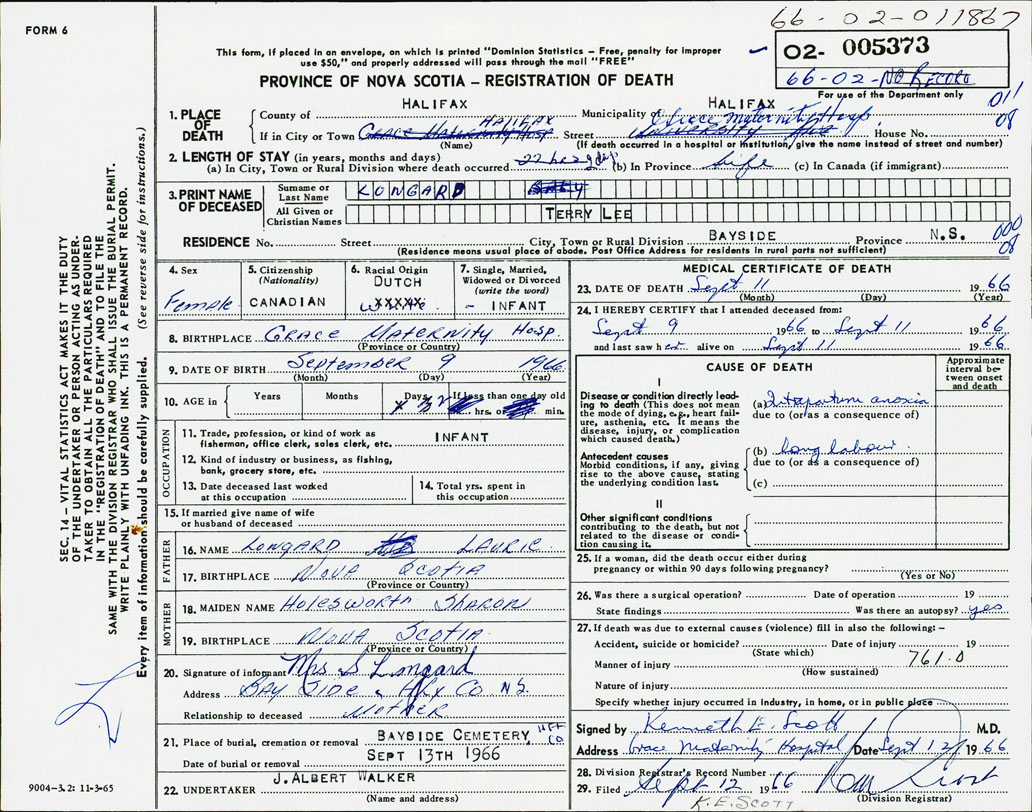 66-02-011867
FORM 6
This form, if placed in an envelope, on which is printed "Dominion Statistics – Free, penalty for improper
use $50," and properly addressed will pass through the mail "FREE"
02- 005373
66-02-NO RECORD
For use of the Department only
PROVINCE OF NOVA SCOTIA – REGISTRATION OF DEATH
011
08
1. PLACE OF DEATH
County of HALIFAX Municipality of HALIFAX
HALIFAX Grace Maternity Hosp.
If in City or Town GRACE MATERNITY HOSP Street UNIVERSITY AVE House No.
(Name) (If death occurred in a hospital or institution, give the name instead of street and number)
2. LENGTH OF STAY (in years, months and days)
(a) In City, Town or Rural Division where death occurred (b) In Province life (c) In Canada (if immigrant)
3. PRINT NAME OF DECEASED
Surname or Last Name LONGARD BABY
All Given or Christian Names TERRY LEE
RESIDENCE No. Street City, Town or Rural Division BAYSIDE Province N.S.
000
08
(Residence means usual place of abode. Post Office Address for residents in rural parts not sufficient)
4. Sex Female
5. Citizenship (Nationality) CANADIAN
6. Racial Origin DUTCH
7. Single, Married, Widowed or Divorced (write the word) - INFANT
8. BIRTHPLACE GRACE MATERNITY HOSP.
(Province or Country)
9. DATE OF BIRTH September 9 1966
(Month) (Day) (Year)
10. AGE in Years Months Days If less than one day old hrs. or min.
OCCUPATION
11. Trade, profession, or kind of work as fisherman, office clerk, sales clerk, etc. INFANT
12. Kind of industry or business, as fishing, bank, grocery store, etc.
13. Date deceased last worked at this occupation
14. Total yrs. spent in this occupation
15. If married give name of wife or husband of deceased
FATHER
16. NAME LONGARD LAURIE
17. BIRTHPLACE NOVA SCOTIA
(Province or Country)
MOTHER
18. MAIDEN NAME HOLESWORTH SHARON
19. BIRTHPLACE NOVA SCOTIA
(Province or Country)
20. Signature of informant Mrs S Longard
Address BAY SIDE, HFX CO NS.
Relationship to deceased MOTHER
21. Place of burial, cremation or removal BAYSIDE CEMETERY, HFX CO
Date of burial or removal SEPT 13TH 1966
22. UNDERTAKER J. ALBERT WALKER
(Name and address)
MEDICAL CERTIFICATE OF DEATH
23. DATE OF DEATH Sept 11 1966
(Month) (Day) (Year)
24. I HEREBY CERTIFY that I attended deceased from:
Sept 9 1966 to Sept 11 1966
and last saw her alive on Sept 11 1966
CAUSE OF DEATH
Approximate interval between onset and death
I
Disease or condition directly leading to death (This does not mean the mode of dying, e.g., heart failure, asthenia, etc. It means the disease, injury, or complication which caused death.)
(a) Intrapartum anoxia
due to (or as a consequence of)
Antecedent causes
Morbid conditions, if any, giving rise to the above cause, stating the underlying condition last.
(b) long labour
due to (or as a consequence of)
(c)
II
Other significant conditions contributing to the death, but not related to the disease or condition causing it.
25. If a woman, did the death occur either during pregnancy or within 90 days following pregnancy?
(Yes or No)
26. Was there a surgical operation? Date of operation 19
State findings Was there an autopsy? yes
27. If death was due to external causes (violence) fill in also the following:–
Accident, suicide or homicide? Date of injury 19
(State which)
761.0
Manner of injury
(How sustained)
Nature of injury
Specify whether injury occurred in industry, in home, or in public place
Signed by Kenneth E. Scott M.D.
Address Grace Maternity Hospital Date Sept 12/ 1966
28. Division Registrar's Record Number
29. Filed Sept 12 1966
(Division Registrar)
K.E. SCOTT
SEC. 14 – VITAL STATISTICS ACT MAKES IT THE DUTY
OF THE UNDERTAKER OR PERSON ACTING AS UNDER-
TAKER TO OBTAIN ALL THE PARTICULARS REQUIRED
IN THE "REGISTRATION OF DEATH" AND TO FILE THE
SAME WITH THE DIVISION REGISTRAR WHO SHALL ISSUE THE BURIAL PERMIT.
WRITE PLAINLY WITH UNFADING INK. THIS IS A PERMANENT RECORD.
Every item of information should be carefully supplied. (See reverse side for instructions.)
9004-3.2: 11-3-65